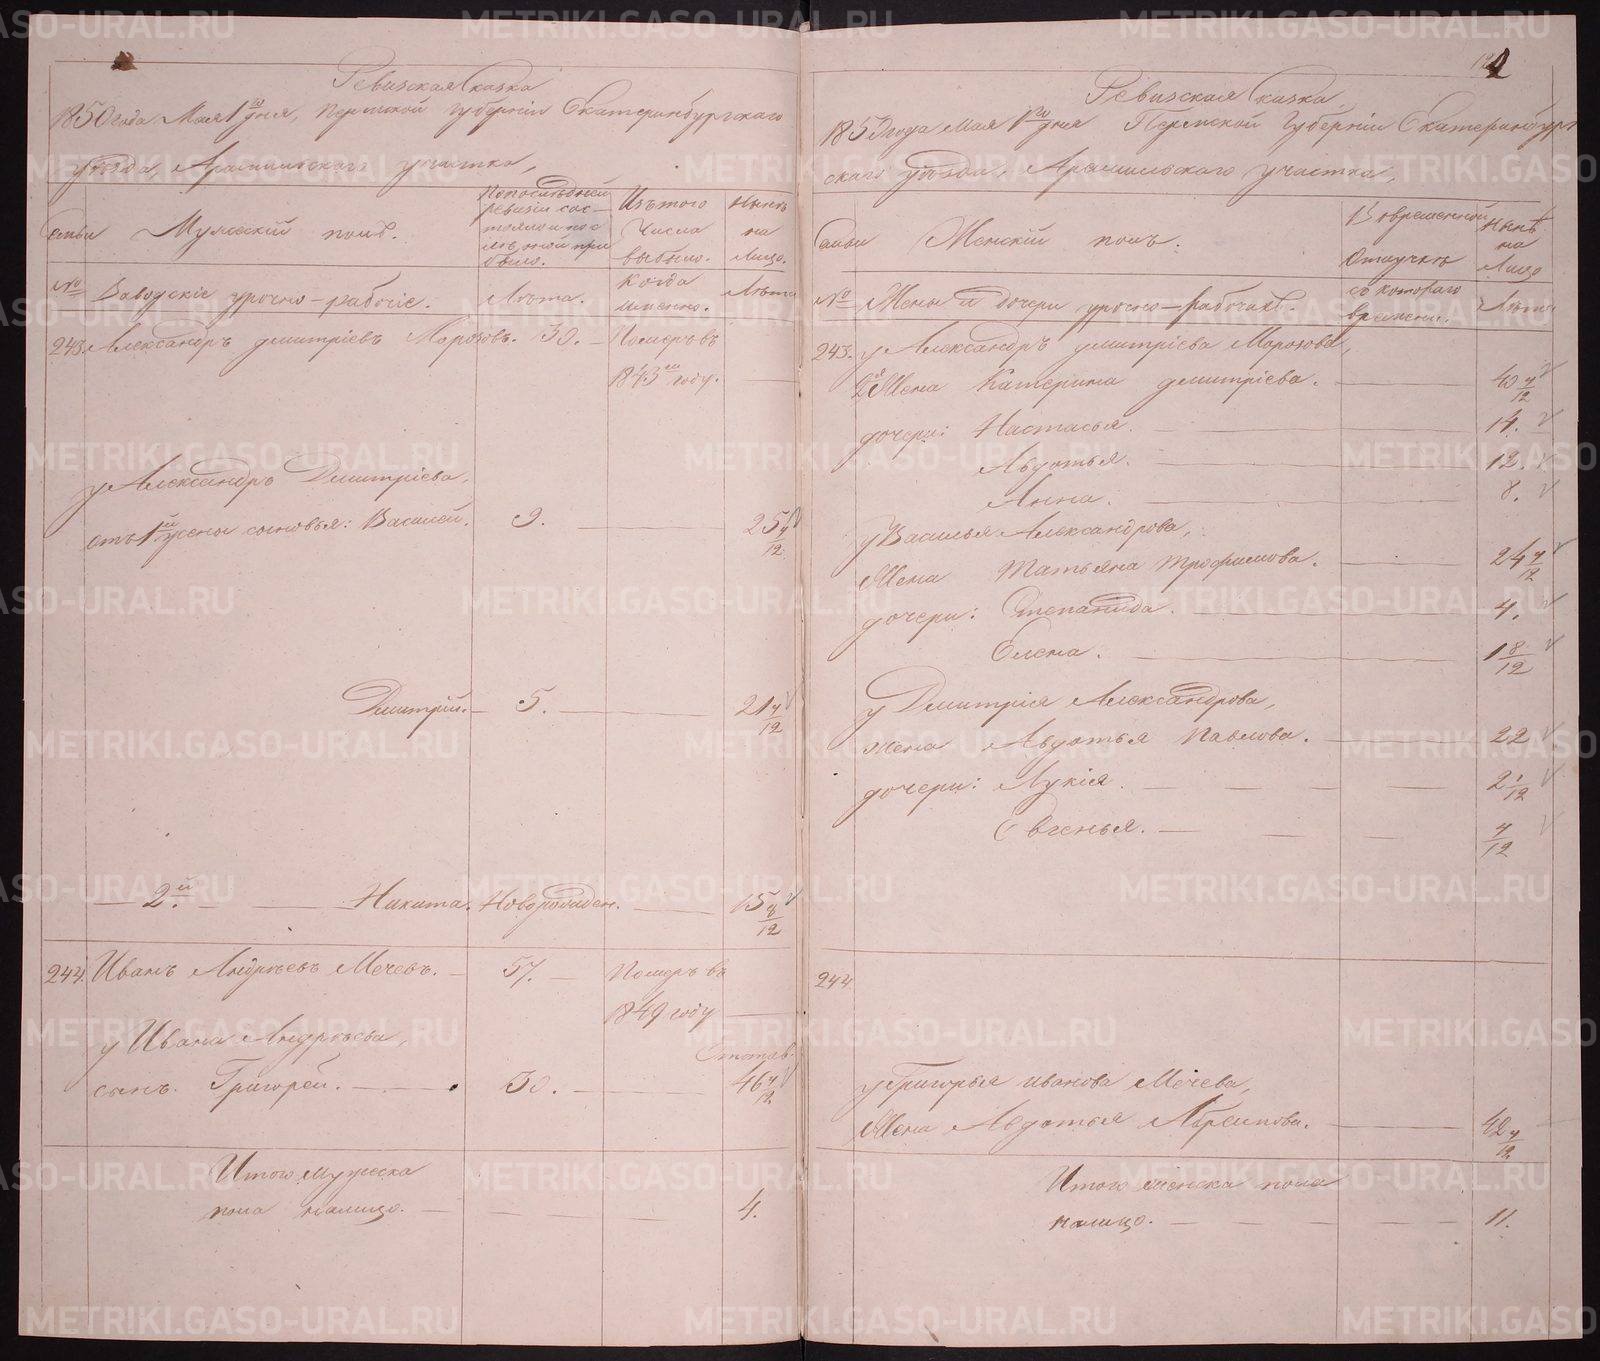 Ревизская Сказка
1850 года Мая 1го дня, Пермской Губернiи Екатеринбургскаго
уѣзда, Арамильскаго участка,
Семьи
Мужескiй полъ.
По последней
ревизiи сос-
тояло и пос
лѣ оной при
было.
Изъ того
Числа
выбыло.
Нынѣ
на
Лицо.
№
Заводскiе урочно-рабочiе.
Лѣта.
Когда
именно.
Лѣта
243. Александръ Дмитрiевъ Морозовъ. 30. Померъ въ
1843мъ году.
у Александръ Дмитрiева,
отъ 1й жены сыновья: Василей. 9. 25 4/12
Дмитрiй. 5. 21 4/12
2й Никита. Новорожден. 15 8/12
244. Иванъ Андрѣевъ Мечевъ. 57. Померъ въ
1849 году
у Ивана Андрѣева,
Отстав.
сынъ Григорей. 30. 46 4/12
Итого мужеска
пола налицо. 4.
Ревизская Сказка,
1850 года мая 1го дня Пермской Губернiи Екатеринбург
скаго уѣзда, Арамильскаго участка,
Семьи
Женскiй полъ.
Во временной
Отлучкѣ
Нынѣ
на
Лицо
№
Жены и дочери урочно-рабочихъ.
съ котораго
времени.
Лѣта.
243. у Александръ Дмитрiева Морозова,
2я Жена Катерина Дмитрiева. 40 4/12
дочери: Настасья. 14.
Авдотья. 12.
Анна. 8.
у Василья Александрова,
Жена Татьяна Трофимова. 24 4/12
дочери: Степанида. 4.
Елена. 1 8/12
у Дмитрiя Александрова,
жена Авдотья Павлова. 22
дочери: Лукiя. 2 1/12
Евгенья. 4/12
244
у Григорья Иванова Мечева,
Жена Авдотья 42 4/12
Итого женска пола
налицо. 11.
METRIKI.GASO-URAL.RU